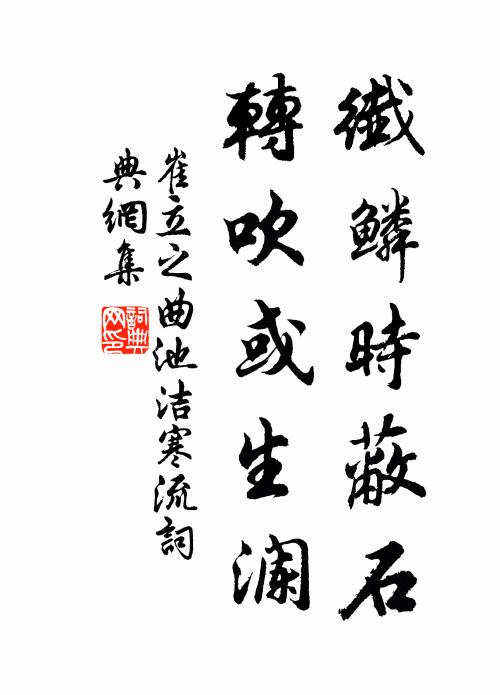 纖鳞時蔽石
轉吹或生澜
崔立之曲池洁寒流詞
典網集
詞典
网印